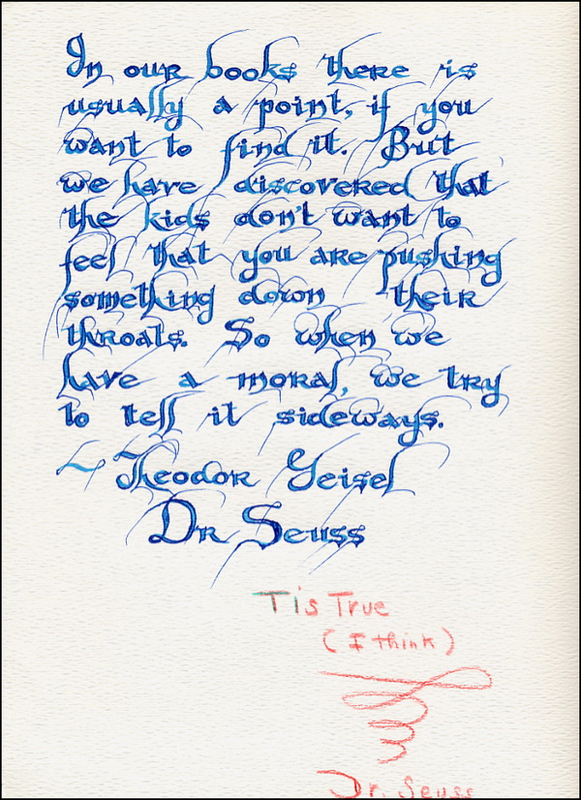 In our books there is
usually a point, if you
want to find it. But
we have discovered that
the kids don't want to
feel that you are pushing
something down their
throats. So when we
have a moral, we try
to tell it sideways.
~ Theodor Geisel
Dr Seuss
Tis True
(I think)
Dr. Seuss